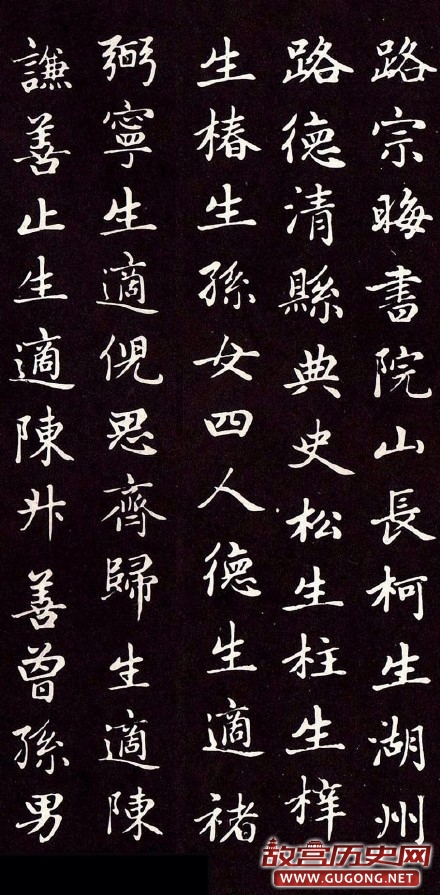 路宗晦書院山長柯生湖州
路德清縣典史松生柱生梓
生椿生孫女四人德生適褚
弼寧生適倪思齊歸生適陳
謙善止生適陳抍善曾孫男
故宫历史网
WWW.GUGONG.NET